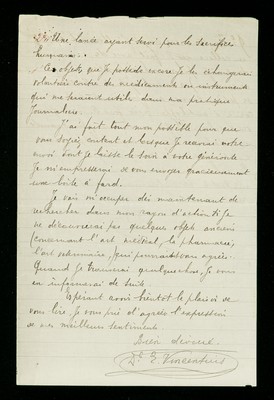 2° Une lance ayant servi pour les sacrifices
humains.
Ces objets que je possède encore je les échangerais
volontiers contre des médicaments ou instruments
qui me seraient utiles dans ma pratique
journalière.
J'ai fait tout mon possible pour que
vous soyez content et lorsque je recevrai votre
envoi dont je laisse le soin à votre générosité
je m'empresserai de vous envoyer gracieusement
une boîte à fard.
Je vais m'occuper dès maintenant de
rechercher dans mon rayon d'action si je
ne découvrirai pas quelques objets anciens
(concernant l'art médical, la pharmacie,
l'art vétérinaire, qui pourraient vous agréer.
Quand je trouverai quelque chose, je vous
en informerai de suite.
Espérant avoir bientôt le plaisir de
vous lire, je vous prie d'agréer l'expression
de mes meilleurs sentiments.
Bien dévoué
Dr E. Vincentius